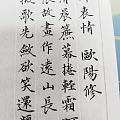 衷情　歐陽修
晨簾幕捲輕霜
故畫作遠山長
歌先斂欲笑還